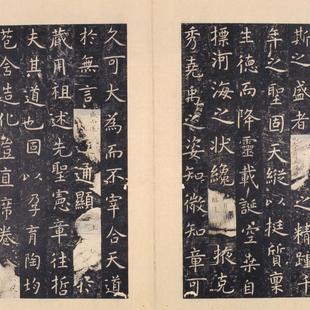 斯之盛者之精踵千
年之聖固天縱以挺質稟
生德而降靈載誕空桑自
摽河海之狀纔掖克
秀堯禹之姿知微知章可
久可大為而不宰合天道
於無言通顯於
藏用祖述先聖憲章往哲
夫其道也固以孕育陶均
苞含造化豈直席卷